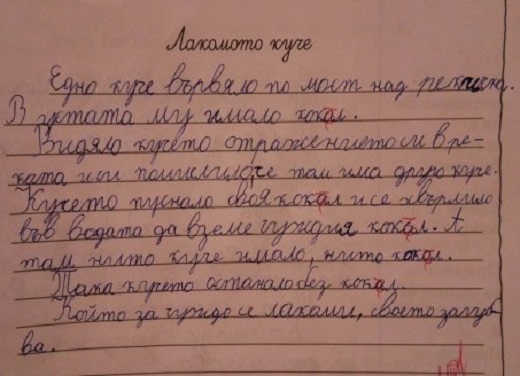 Лакомото куче
Едно куче вървяло по мост над рекичка.
В устата му имало кокал.
Видяло кучето отражението си в ре-
ката и си помислило, че там има друго куче.
Кучето пуснало своя кокал и се хвърлило
във водата да вземе чуждия кокъл. А
там нито куче имало, нито кокал.
Така кучето останало без кокал.
Който за чуждо се лакоми, своето загуб-
ва.